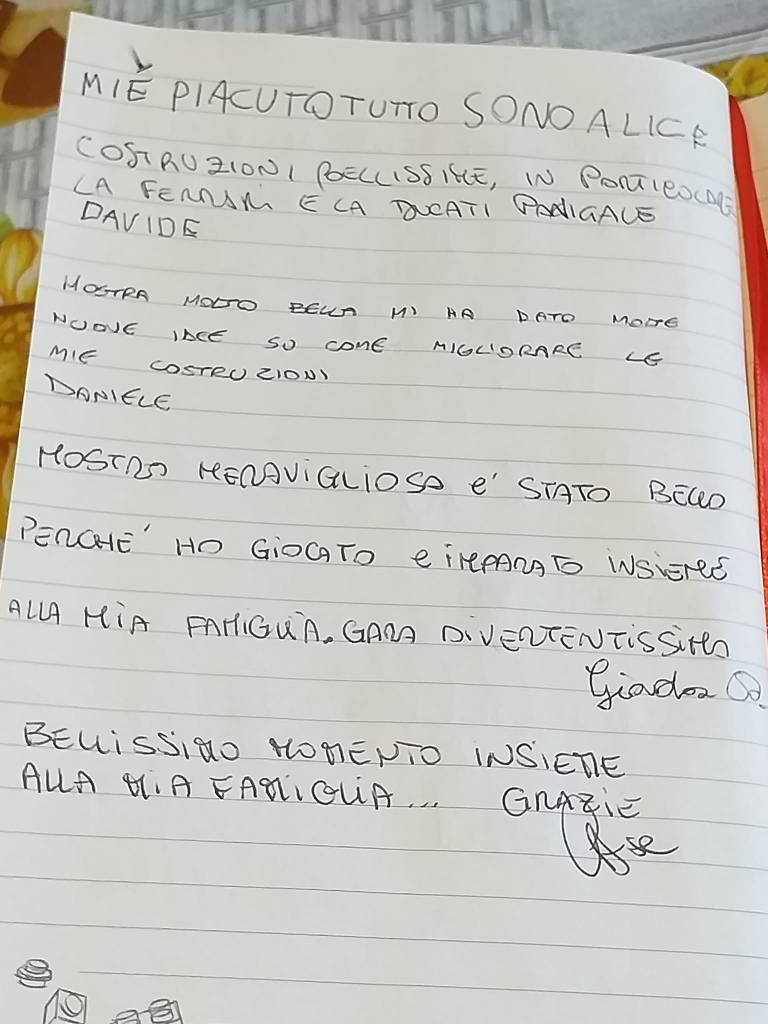 MIÈ PIACUTO TUTTO SONO ALICE
COSTRUZIONI BELLISSIME, IN PARTICOLARE
LA FERRARI E LA DUCATI PANIGALE
DAVIDE
MOSTRA MOLTO BELLA MI HA DATO MOLTE
NUOVE IDEE SU COME MIGLIORARE LE
MIE COSTRUZIONI
DANIELE
MOSTRA MERAVIGLIOSA e' STATO BELLO
PERCHE' HO GIOCATO e iMPARATO INSIEME
ALLA MIA FAMIGLIA. GARA DIVERTENTISSIMA
Giada
BELLISSIMO MOMENTO INSIEME
ALLA MIA FAMIGLIA... GRAZIE